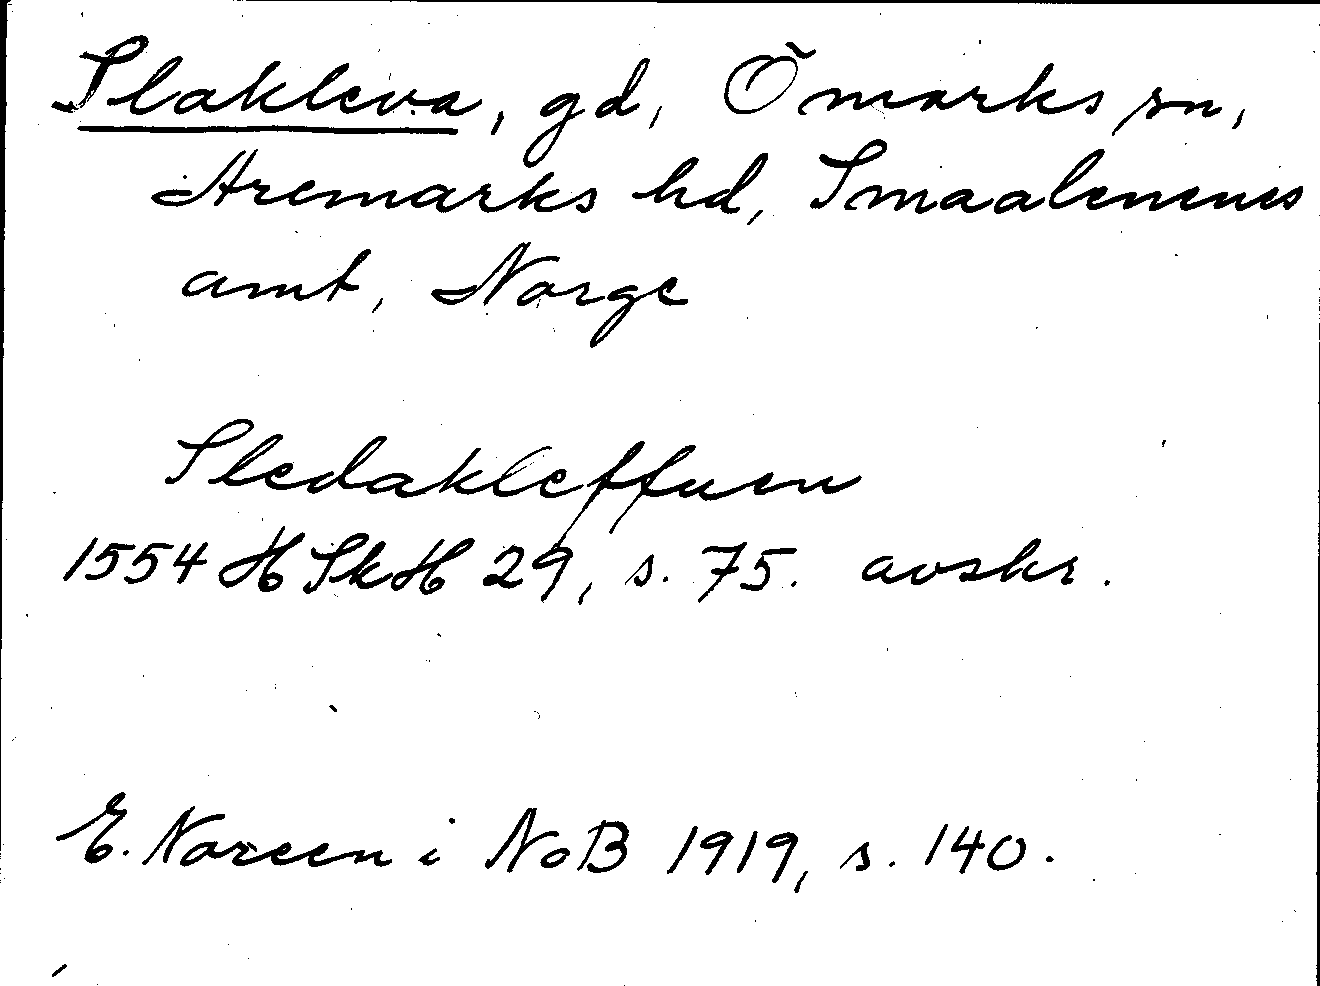 Slakleva, gd, Ömarks sn,
Aremarks hd, Smaalenenes
amt, Norge
Sledakleffuen
1554 HSkH 29, s. 75. avskr.
E. Noreen i NoB 1919, s. 140.